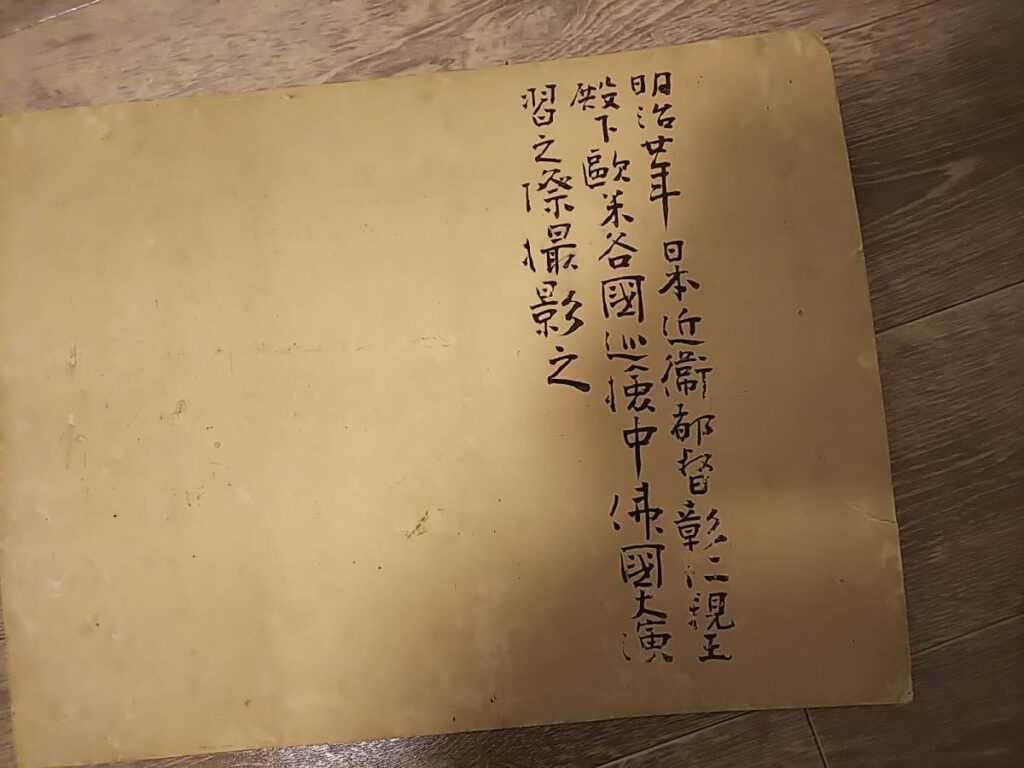 明治廿年日本近衞都督彰仁親王
殿下歐米各國巡懐中佛國大演
習之際撮影之